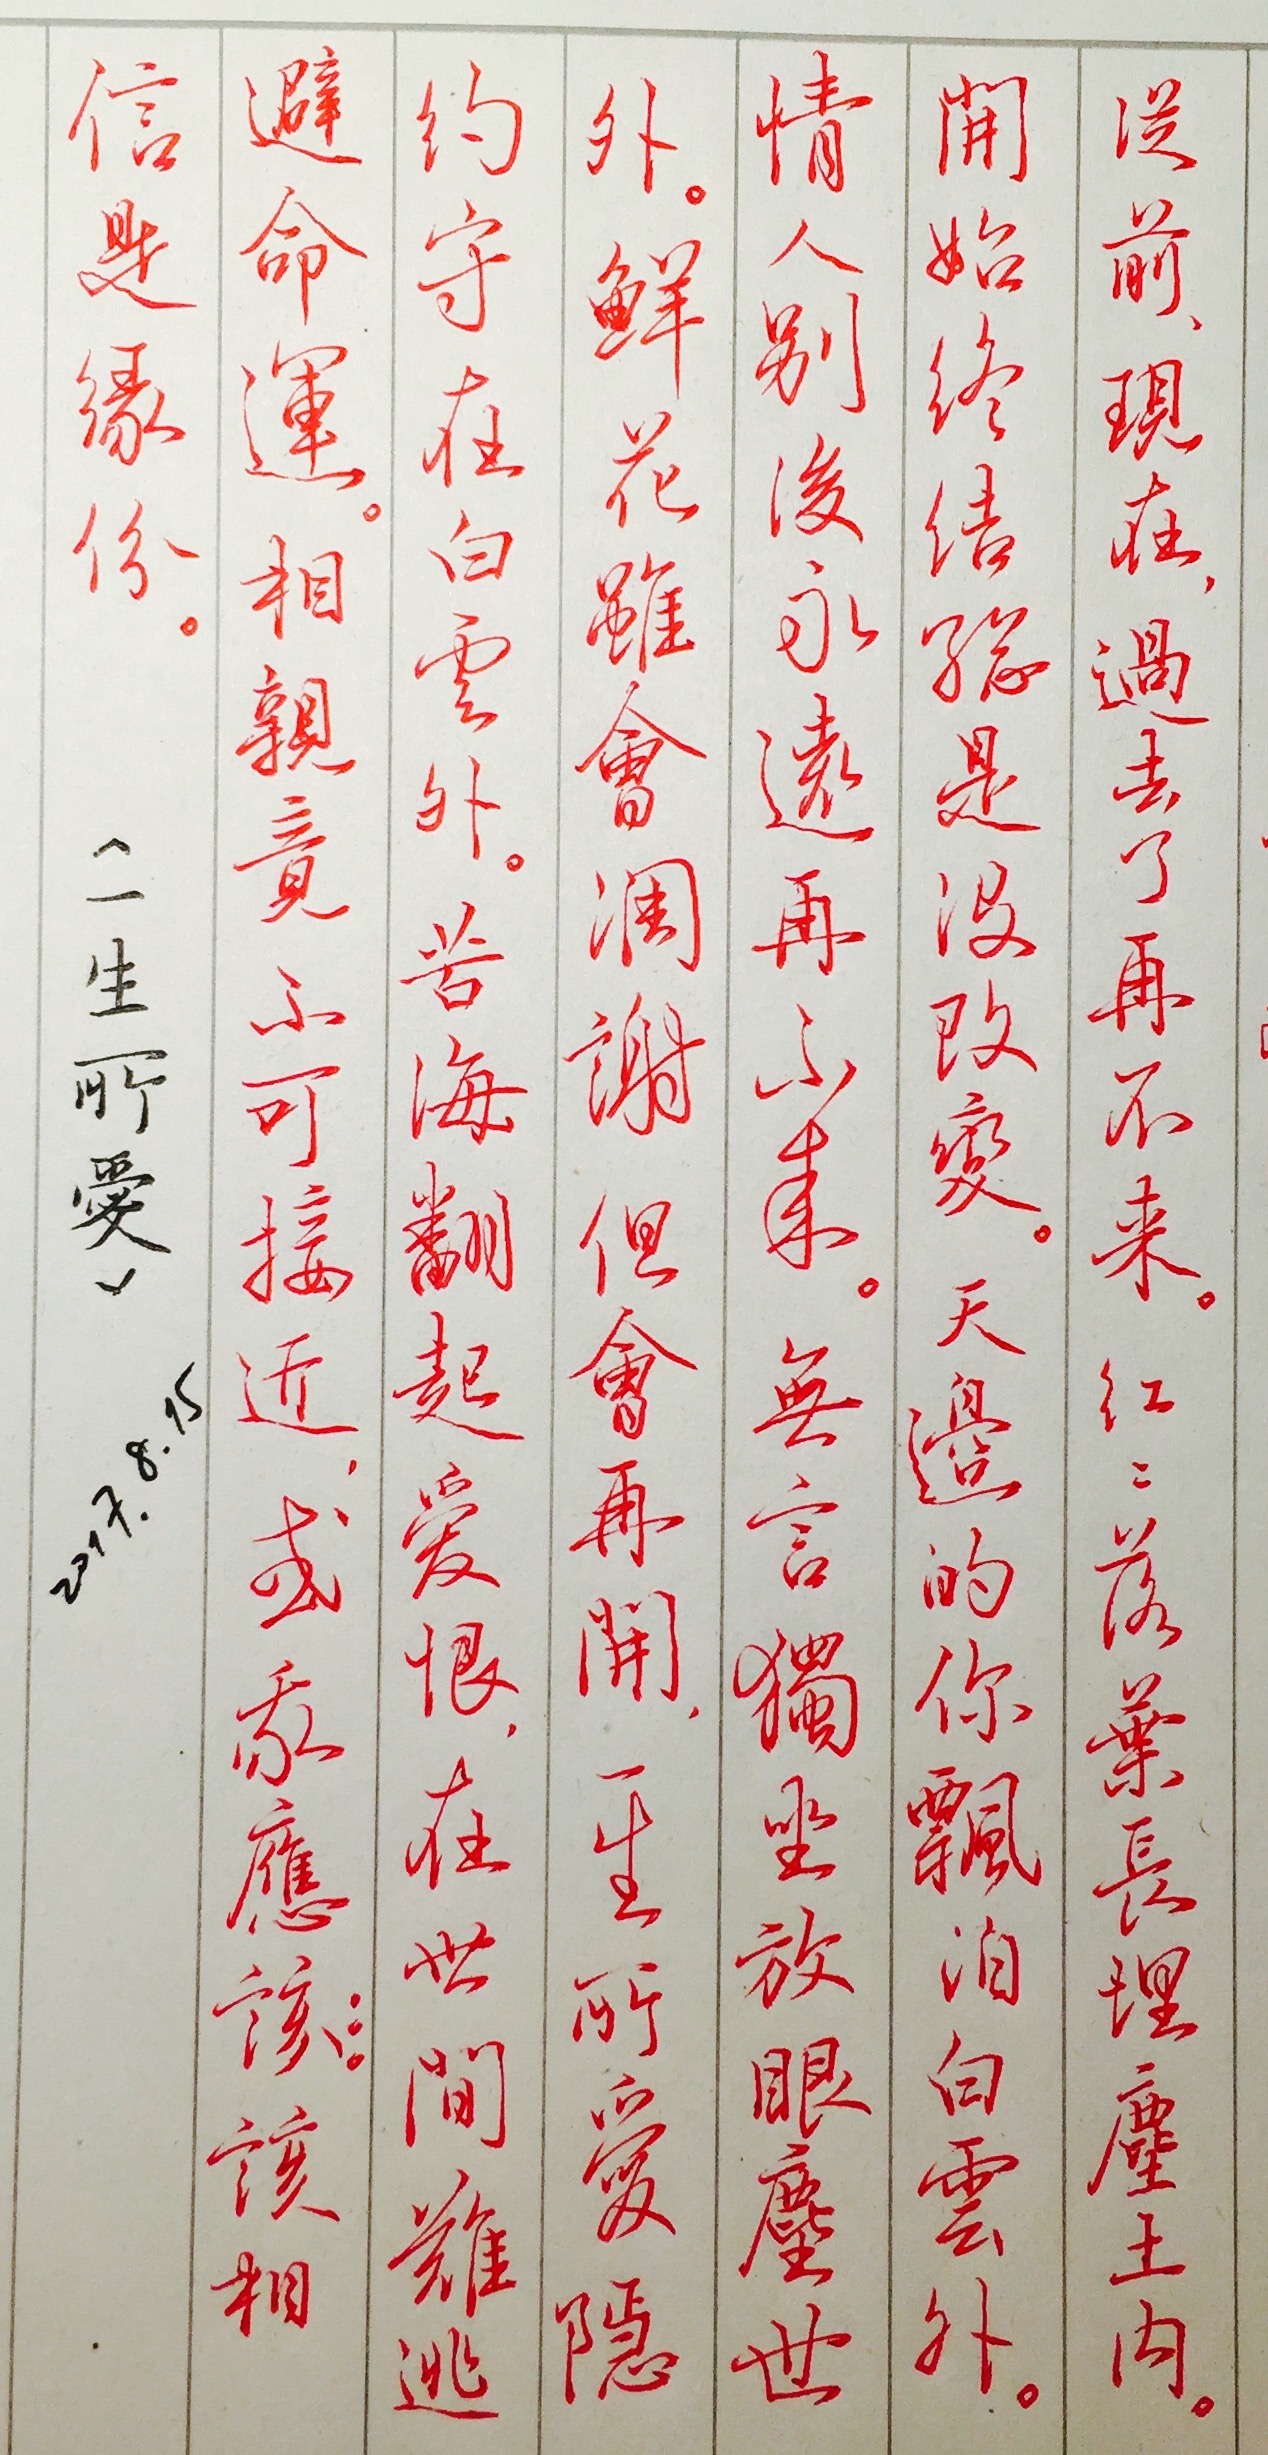 從前、現在，過去了再不来。红々落葉長埋塵土内。
開始終結總是没改變。天邊的你飄泊白雲外。
情人别後永遠再不来。無言獨坐放眼塵世
外。鮮花雖會凋謝但會再開，一生所愛隱
约守在白雲外。苦海翻起爱恨，在世間難逃
避命運。相親竟不可接近，或我應該：該相
信是缘份。
《一生所愛》
2017.8.15